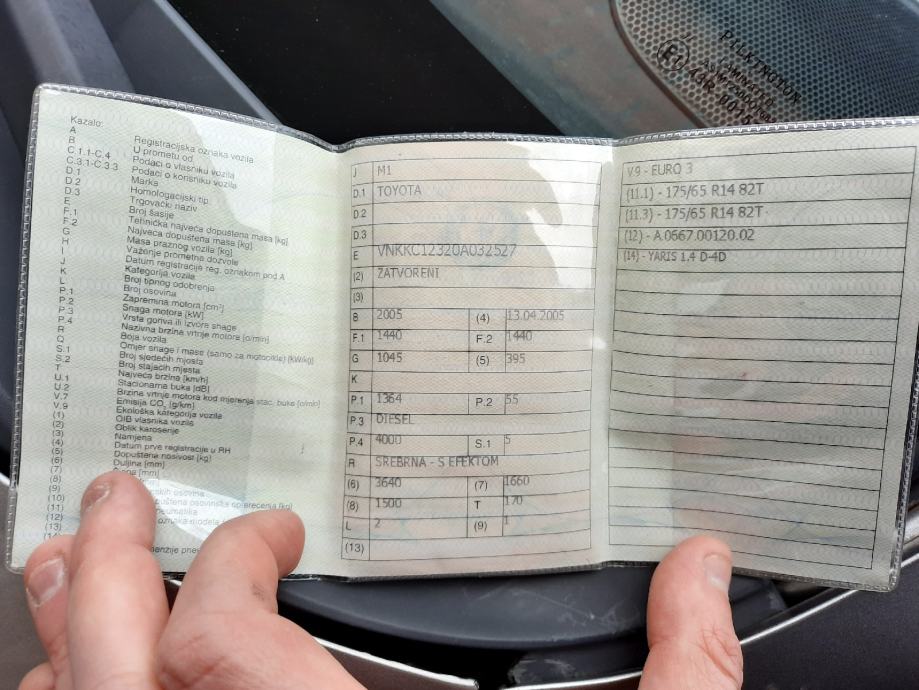 Kazalo:
A Registracijska oznaka vozila
B U prometu od
C.1.1-C.4 Podaci o vlasniku vozila
C.3.1-C.3.3 Podaci o korisniku vozila
D.1 Marka
D.2 Homologacijski tip
D.3 Trgovački naziv
E Broj šasije
F.1 Tehnička najveća dopuštena masa [kg]
F.2 Najveća dopuštena masa [kg]
G Masa praznog vozila [kg]
H Važenje prometne dozvole
I Datum registracije reg. oznakom pod A
J Kategorija vozila
K Broj tipnog odobrenja
L Broj osovina
P.1 Zapremina motora [cm³]
P.2 Snaga motora [kW]
P.3 Vrsta goriva ili izvora snage
P.4 Nazivna brzina vrtnje motora [o/min]
R Boja vozila
Q Omjer snage i mase (samo za motocikle) [kW/kg]
S.1 Broj sjedećih mjesta
S.2 Broj stajaćih mjesta
T Najveća brzina [km/h]
U.1 Stacionarna buka [dB]
U.2 Brzina vrtnje motora kod mjerenja stac. buke [o/min]
V.7 Emisija CO₂ [g/km]
V.9 Ekološka kategorija vozila
(1) OIB vlasnika vozila
(2) Oblik karoserije
(3) Namjena
(4) Datum prve registracije u RH
(5) Dopuštena nosivost [kg]
(6) Duljina [mm]
(7) [mm]
(8)
(9)
(10)
(11)
(12) oznaka modela
(13)
J M1
D.1 TOYOTA
D.2
D.3
E VNKKC12320A032527
(2) ZATVORENI
(3)
B 2005 (4) 13.04.2005
F.1 1440 F.2 1440
G 1045 (5) 395
K
P.1 1364 P.2 55
P.3 DIESEL
P.4 4000 S.1 5
R SREBRNA - S EFEKTOM
(6) 3640 (7) 1660
(8) 1500 T 170
L 2 (9) 1
(13)
V.9 - EURO 3
(11.1) - 175/65 R14 82T
(11.3) - 175/65 R14 82T
(12) - A.0667.00120.02
(14) - YARIS 1.4 D-4D